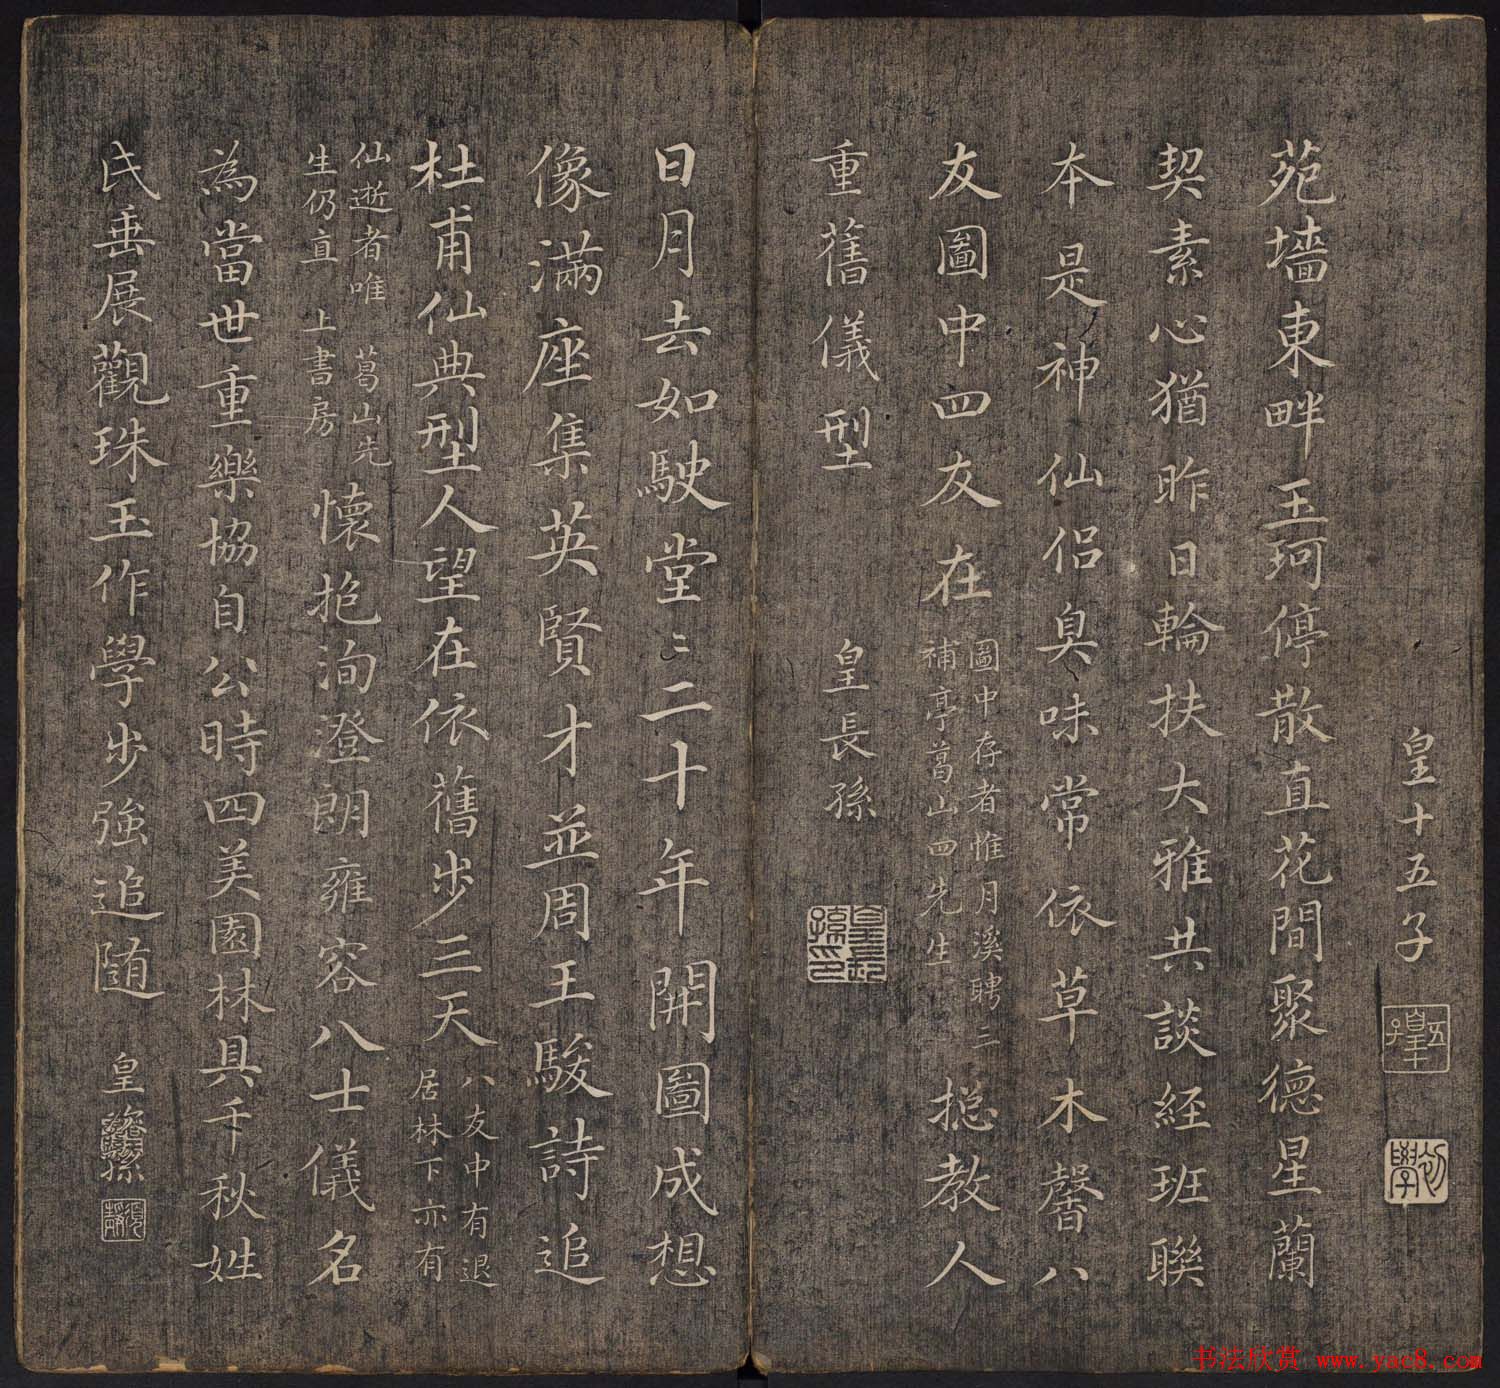 皇十五子
皇十五子
初學
苑墻東畔玉珂停散直花間聚德星蘭
契素心猶昨日輪扶大雅共談經班聯
本是神仙侶臭味常依草木馨八
友圖中四友在
圖中存者惟月溪聘三
補亭葛山四先生
摠教人
重舊儀型
皇長孫
皇長孫印
日月去如駛堂〻二十年開圖成想
像滿座集英賢才並周王駿詩追
杜甫仙典型人望在依舊步三天
八友中有退
居林下亦有
仙逝者唯葛山先
生仍直上書房
懷抱洵澄朗雍容八士儀名
為當世重樂協自公時四美園林具千秋姓
氏垂展觀珠玉作學步強追随
皇孫
书法欣赏 www.yac8.com